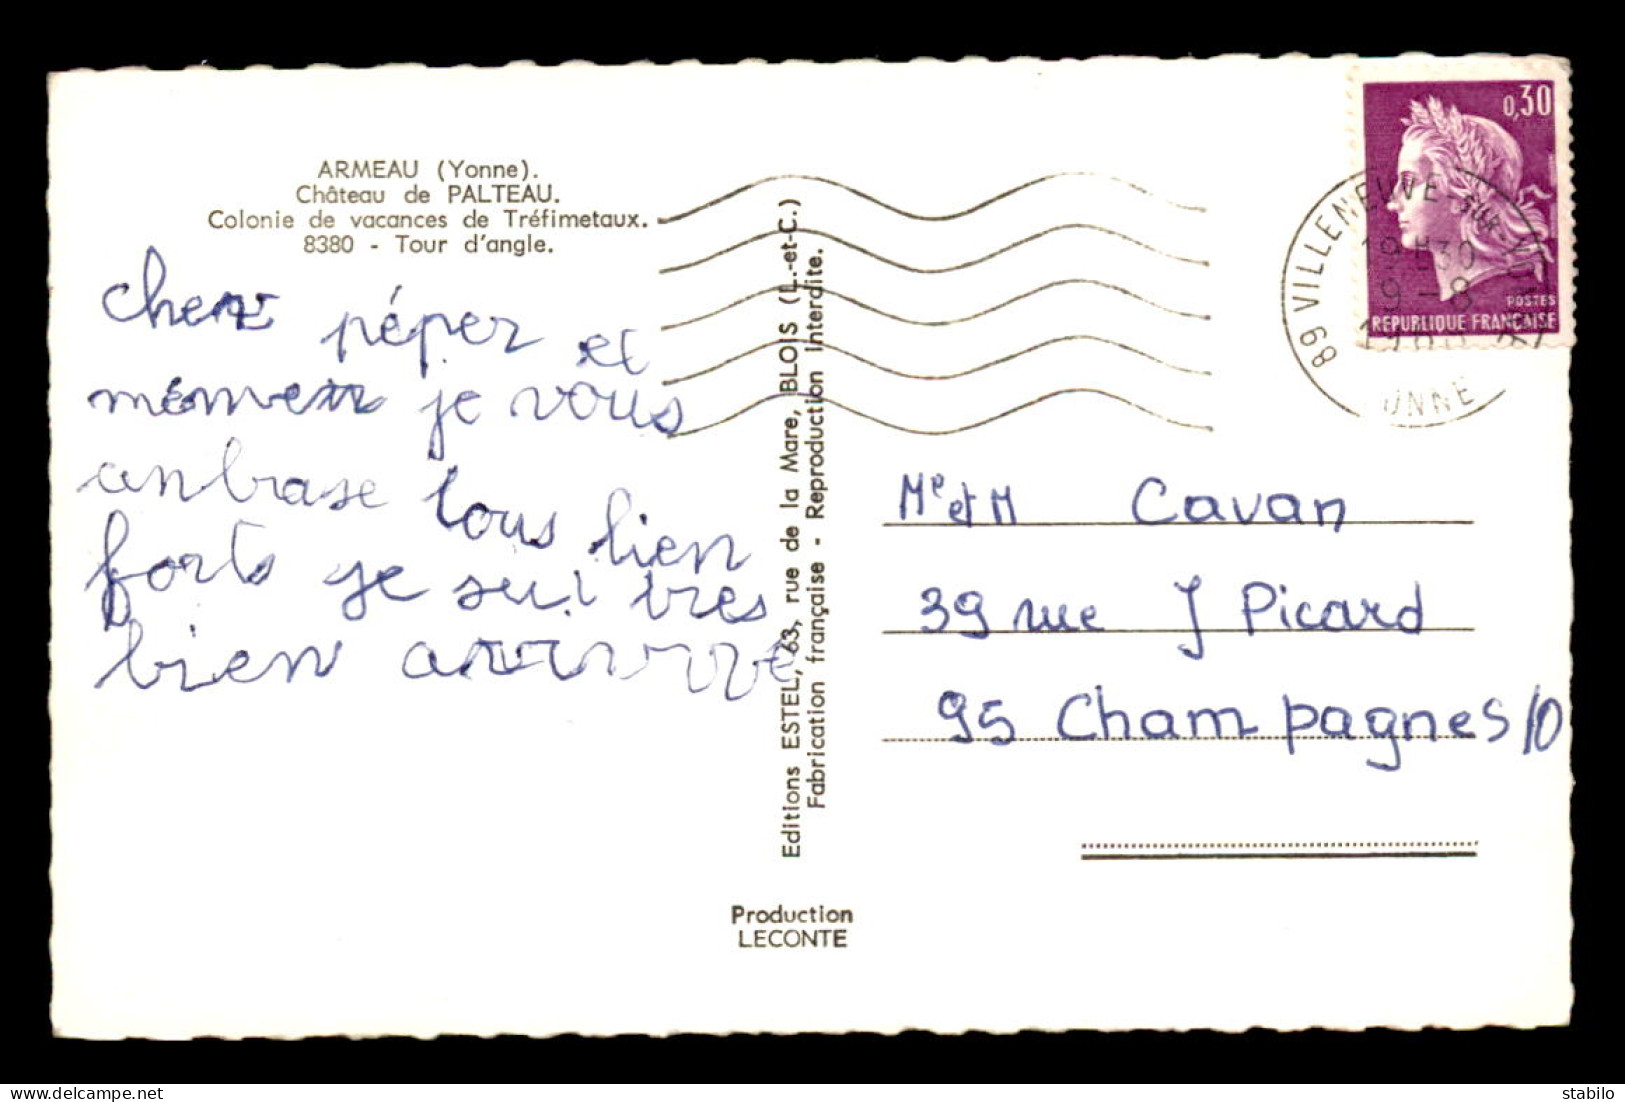 ARMEAU (Yonne).
Château de PALTEAU.
Colonie de vacances de Tréfimetaux.
8380 - Tour d'angle.
cher péper et
mémer je vous
anbrase tous bien
forts je sui tres
bien arrivé
Editions ESTEL, 63, rue de la Mare, BLOIS (L.-et-C.)
Fabrication française - Reproduction Interdite.
Production
LECONTE
0,30
POSTES
REPUBLIQUE FRANÇAISE
89 VILLENEUVE-SUR-YONNE
19H30
9-8
YONNE
Me et M Cavan
39 rue J Picard
95 Champagnes/O
delcampe.net
stabilo